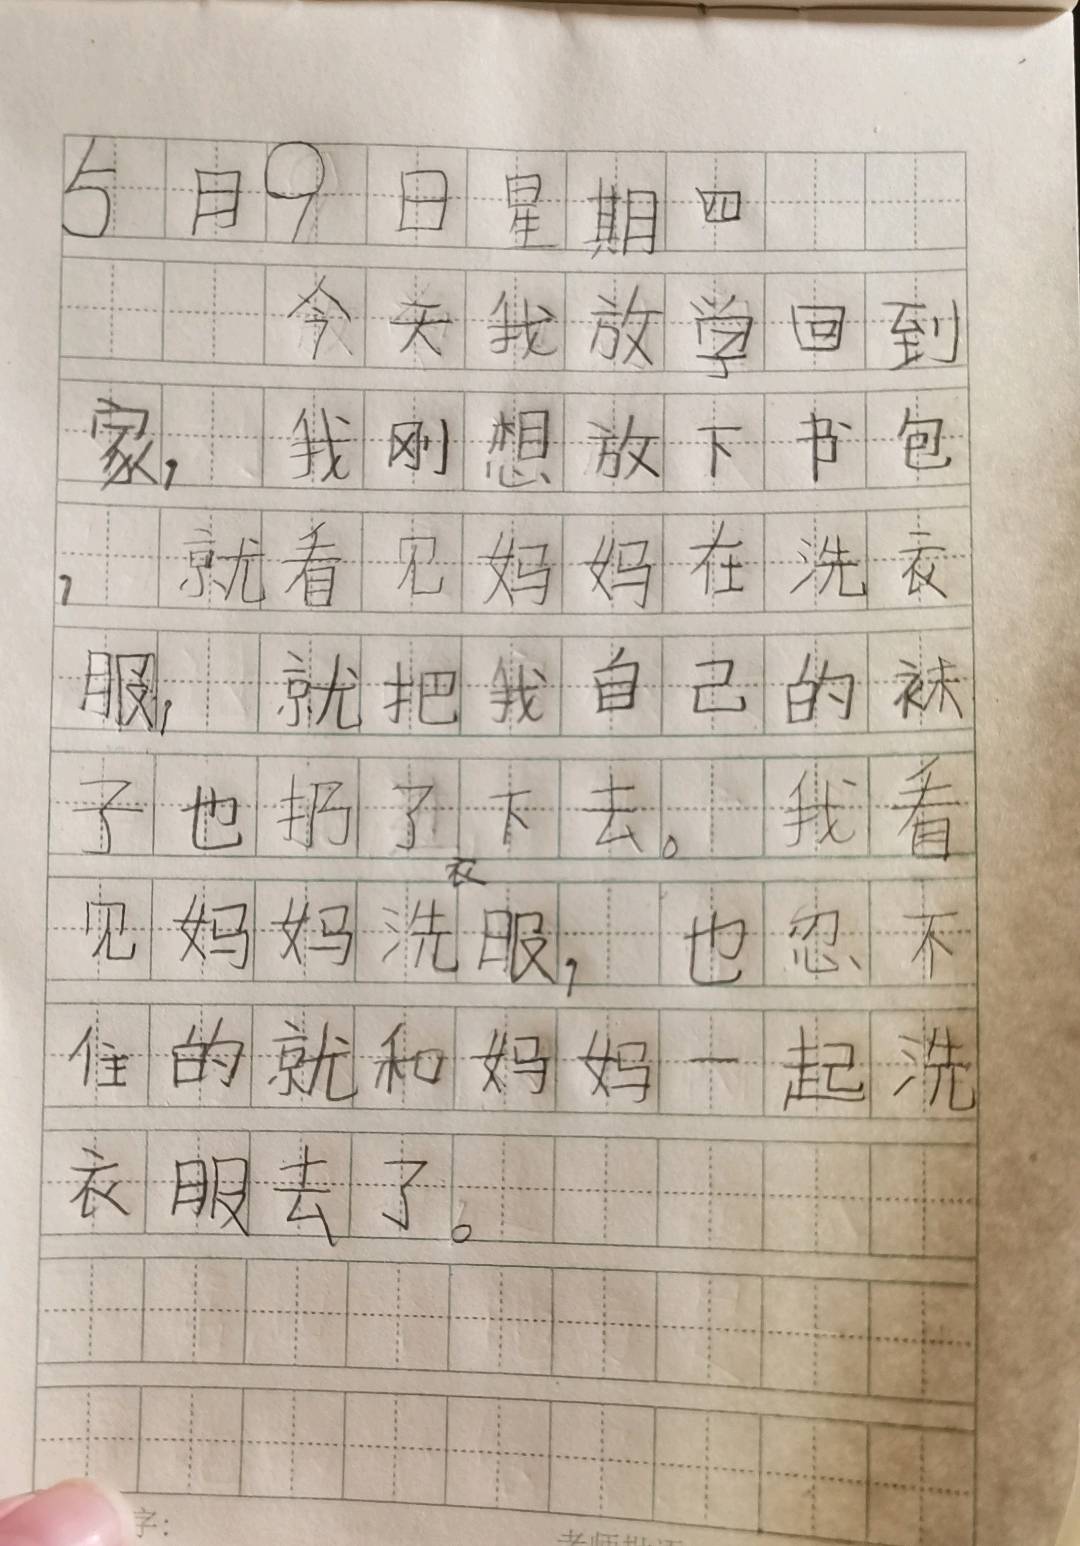 5月9日星期四
今天我放学回到
家，我刚想放下书包
，就看见妈妈在洗衣
服，就把我自己的袜
子也扔了下去。我看
见妈妈洗衣服，也忍不
住的就和妈妈一起洗
衣服去了。
字：